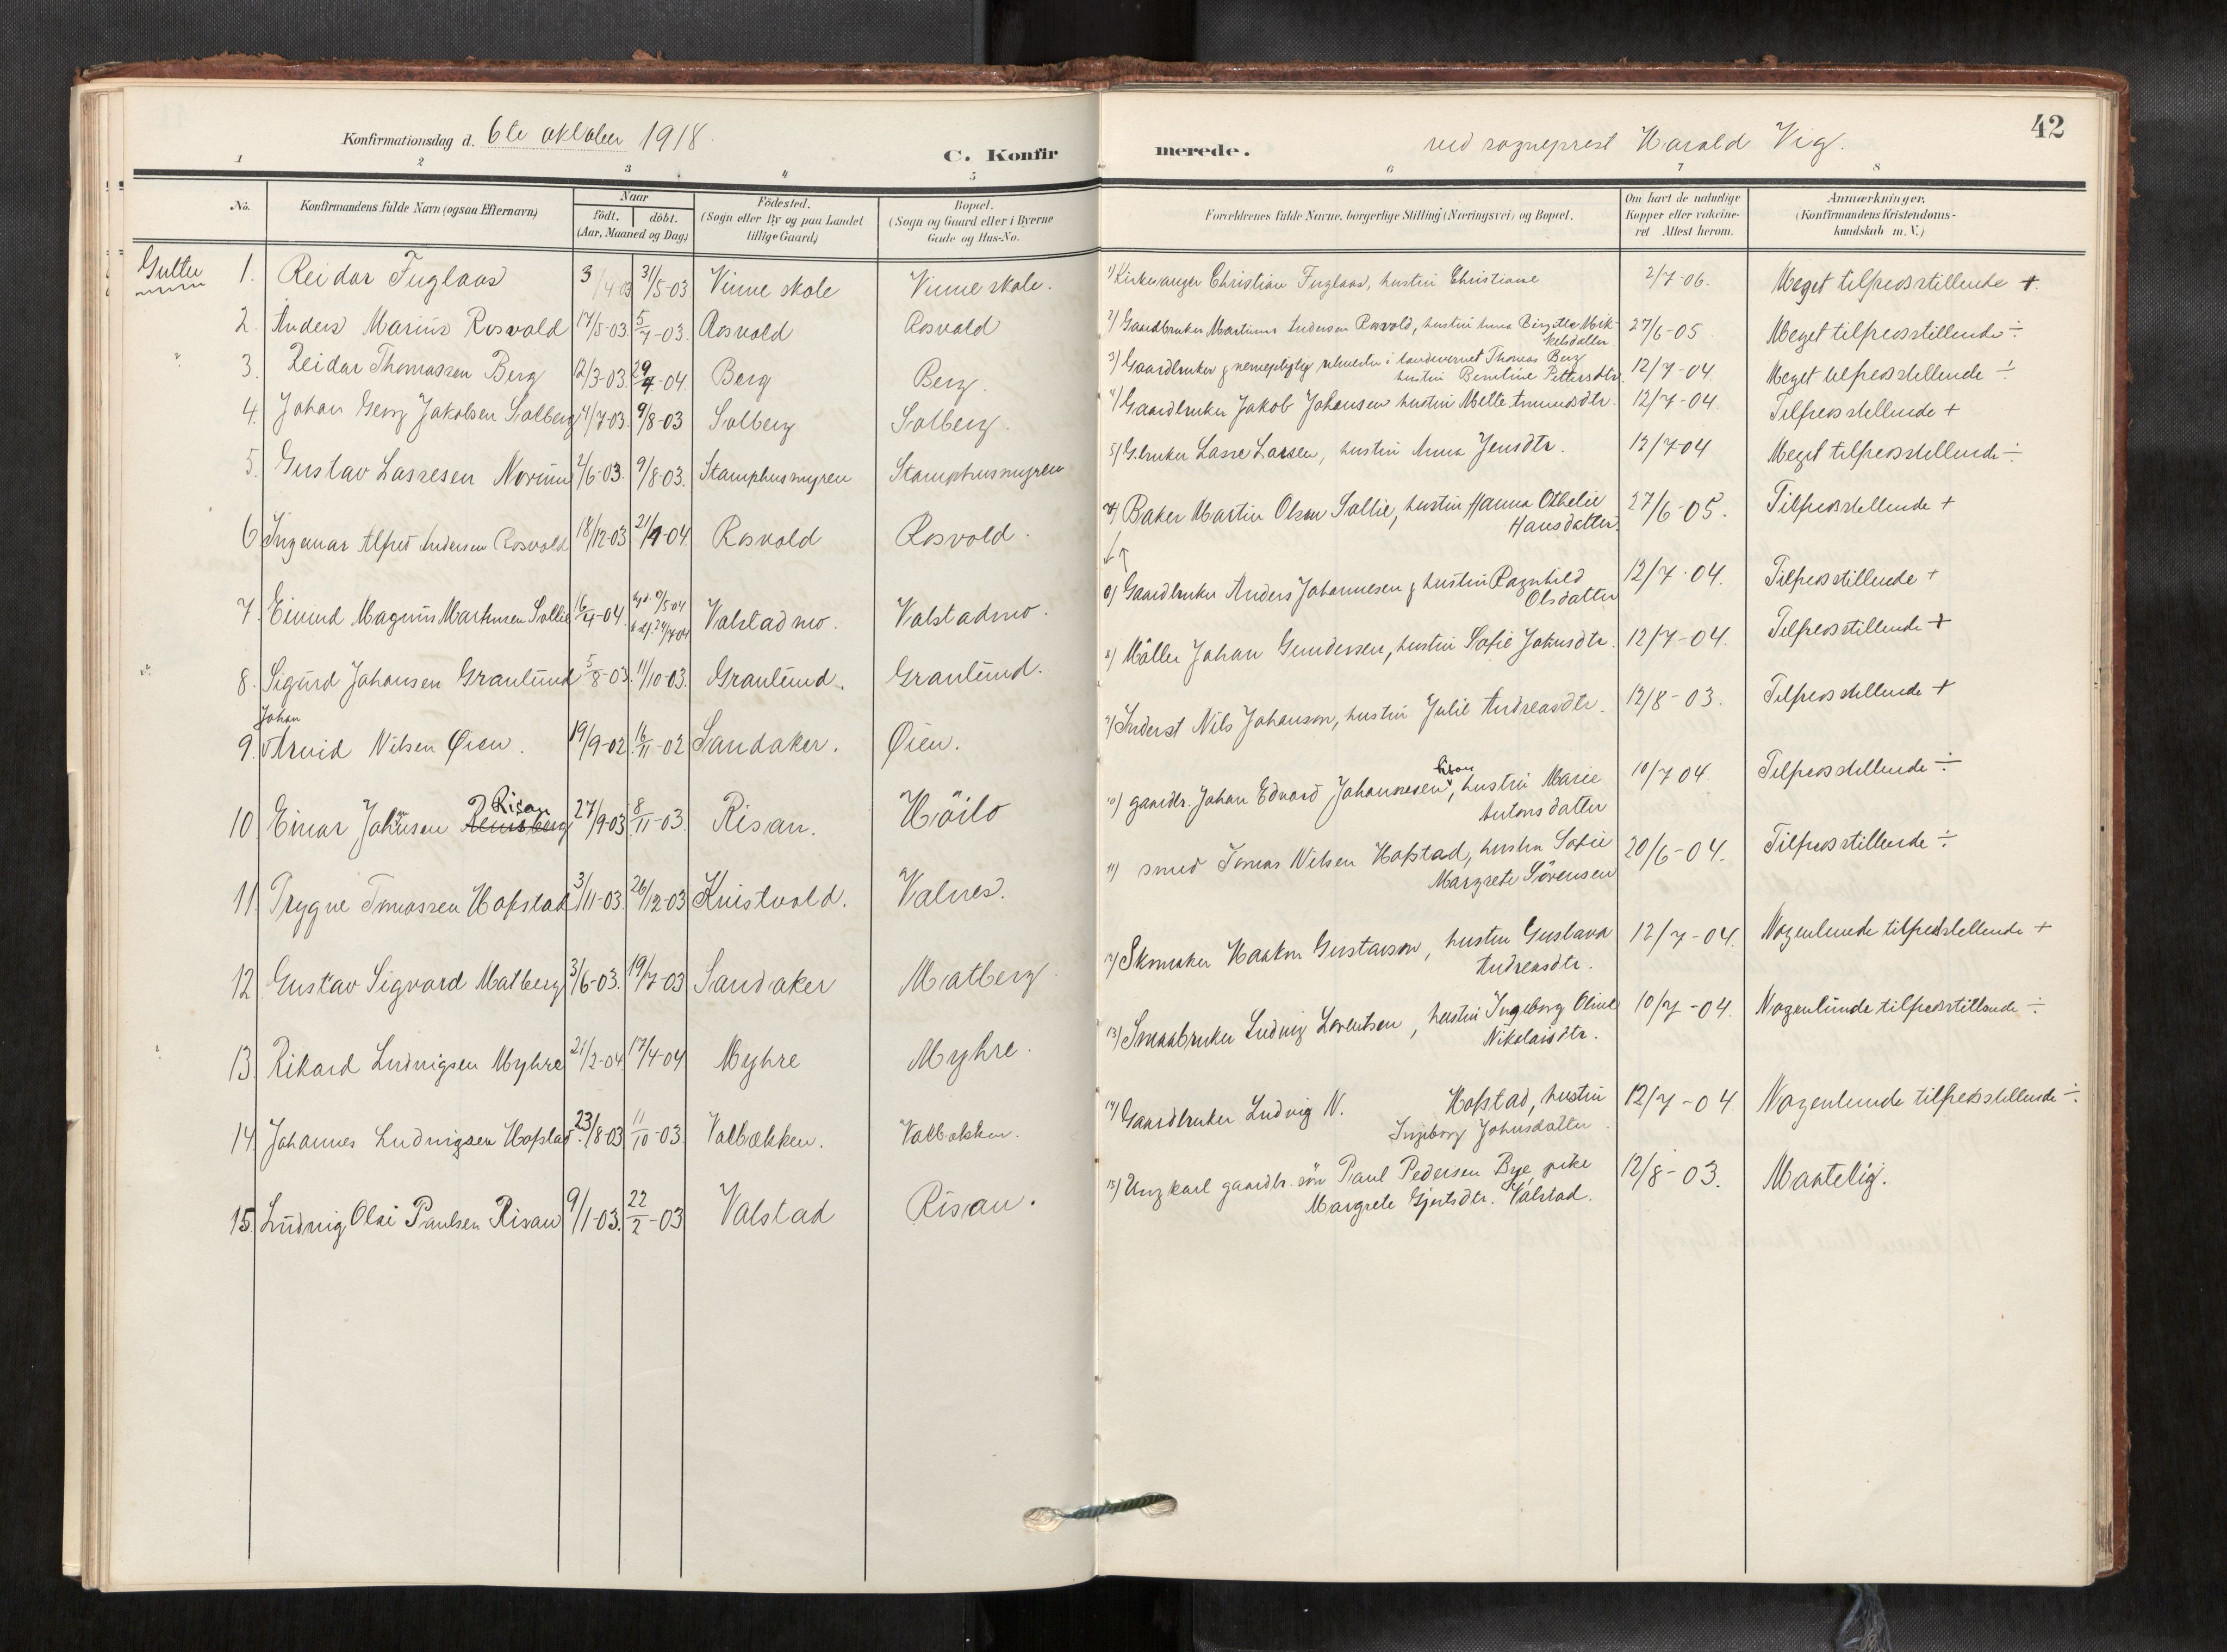 Konfirmationsdag d. 6te oktober 1918.
C. Konfir
1 2 3 4 5
No.
Konfirmandens fulde Navn (ogsaa Efternavn)
Naar
födt. döbt.
(Aar, Maaned og Dag)
Födested.
(Sogn eller By og paa Landet
tillige Gaard)
Bopæl.
(Sogn og Gaard eller i Byerne
Gade og Hus-No.
Gutter 1. Reidar Fuglaas 3/4-03 31/5-03 Vinne skole Vinne skole.
2. Anders Marius Rosvold 17/5-03. 5/7-03. Rosvold Rosvold
3. Reidar Thomassen Berg 12/3-03. 29/4-04 Berg Berg.
4. Johan Georg Jakobsen Solberg 4/7-03. 9/8-03 Solberg Solberg.
5. Gustav Lassesen Norum 2/6-03. 9/8-03. Stamphusmyren Stamphusmyren
6 Ingemar Alfred Andersen Rosvold 18/12-03 21/1-04. Rosvold Rosvold.
7. Eivind Magnus Martinsen Sollie 16/4-04. Valstadmo. Valstadmo.
8. Sigurd Johansen Granlund 5/8-03. 11/10-03. Granlund. Granlund.
Johan
9. Arvid Nilsen Øien. 19/9-02 16/11-02 Sandaker. Øien.
Risan
10 Einar Johansen 27/9-03 8/11-03. Risan. Höilo
11. Trygve Tomassen Hofstad 3/11-03. 26/12-03 Kvistvold. Valnes.
12 Gustav Sigvard Matberg 3/6-03. 19/7-03 Sandaker Matberg
13. Rikard Ludvigsen Myhre 21/2-04 17/4-04 Myhre Myhre.
14. Johannes Ludvigsen Hofstad 23/8-03 11/10-03 Valbækken. Valbækken.
15. Ludvig Olai Paulsen Risan 9/1-03. 22/2-03 Valstad Risan.
merede.
ved sogneprest Harald Vig.
42
6 7 8
Forældrenes fulde Navne, borgerlige Stilling (Næringsvei) og Bopæl.
Om havt de naturlige
Kopper eller vakcine-
ret Attest herom.
Anmærkninger.
(Konfirmandens Kristendoms-
kundskab m. V.)
1) Kirkesanger Christian Fuglaas, hustru Christiane 2/7-06. Meget tilfredsstillende +
2) Gaardbruker Martinus Andersen Rosvold, hustru Anna Birgitte Mik- 27/6-05 Meget tilfredsstillende ÷
kelsdatter
3) Gaardbruker g vernepligtig i landevernet Thomas Berg 12/7-04. Meget tilfredsstillende ÷
hustru Berntine Pettersdtr.
4) Gaardbruker Jakob Johansen hustru Mette Amundsdtr. 12/7-04 Tilfredsstillende +
5) G.bruker Lasse Larsen, hustru Anna Jensdtr. 12/7-04 Meget tilfredsstillende ÷
7) Baker Martin Olsen Sollie, hustru Hanna Othelie 27/6-05. Tilfredsstillende +
Hansdatter
6) Gaardbruker Anders Johannesen g hustru Ragnhild 12/7-04. Tilfredsstillende +
Olsdatter
8) Möller Johan Gundersen, hustru Sofie Johnsdtr. 12/7-04. Tilfredsstillende +
9) Inderst Nils Johanson, hustru Julie Andreasdtr. 12/8-03. Tilfredsstillende +
10) gaardbr. Johan Edvard Johannesen, hustru Marie 10/7 04. Tilfredsstillende ÷
Antonsdatter
11) smed Tomas Nilsen Hofstad, hustru Sofie 20/6-04. Tilfredsstillende ÷
Margrete Sörensen
12) Skomaker Haakon Gustavson, hustru Gustava 12/7-04. Nogenlunde tilfredsstellende +
Andreasdtr.
13) Smaabruker Ludvig Lorentsen, hustru Ingeborg Oline 10/7-04. Nogenlunde tilfredsstillende ÷
Nikolaisdtr.
14) Gaardbruker Ludvig N. Hofstad, hustru 12/7-04 Nogenlunde tilfredsstillende ÷
Ingeborg Johnsdatter
15) Ungkarl gaardbr. sön Paul Pedersen Bye, pike 12/8-03. Maatelig.
Margrete Gjertsdtr. Valstad.